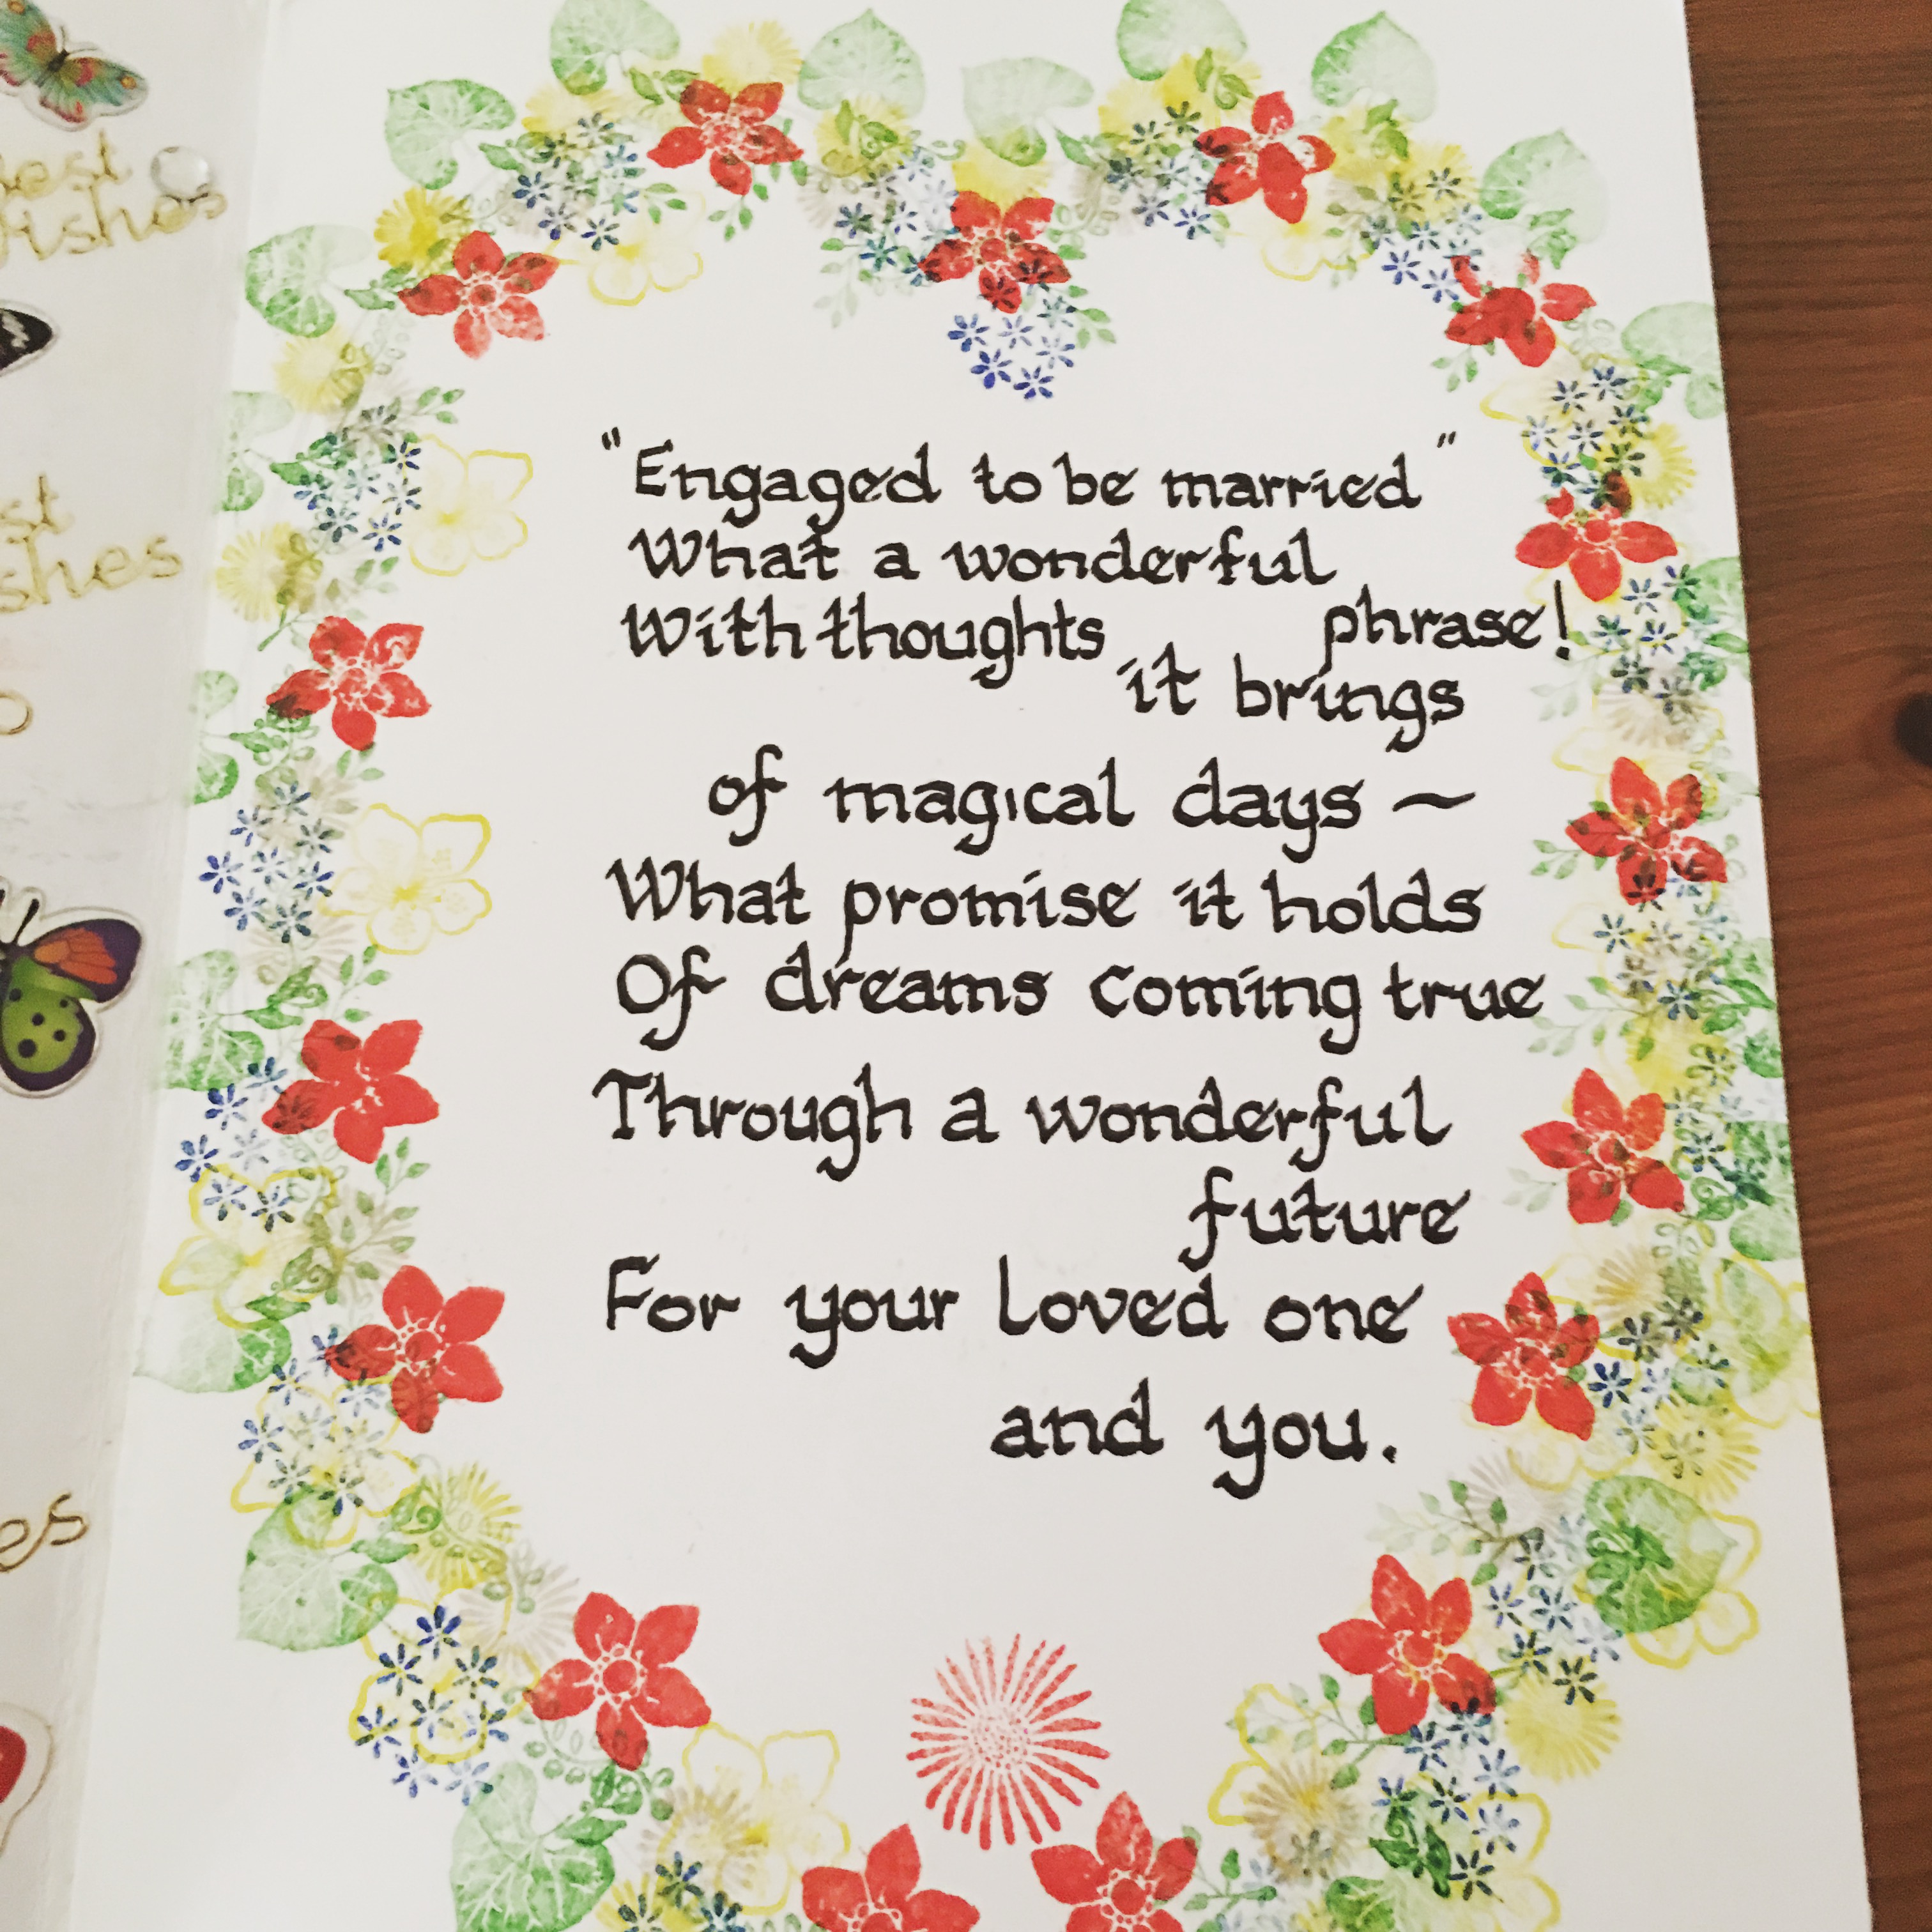 "Engaged to be married"
What a wonderful
phrase!
With thoughts
it brings
of magical days ~
What promise it holds
Of dreams coming true
Through a wonderful
future
For your loved one
and you.